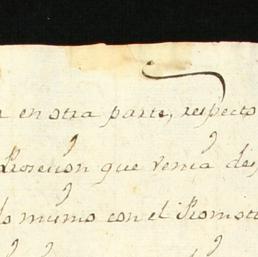 en otra parte, respecto
Rosellon que venia des
lo mismo con el Promoto